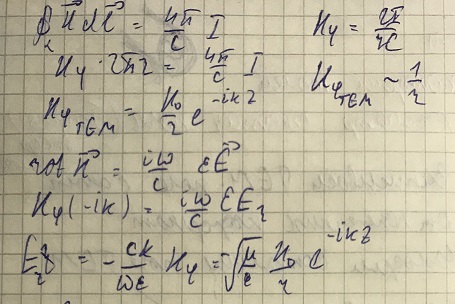 ∮_L H⃗ dl⃗ = 4π/c I     H_φ = 2I/rc
H_φ · 2πr = 4π/c I     H_φ_TEM ~ 1/r
H_φ_TEM = H₀/r e^{-ikz}
rot H⃗ = iω/c εE⃗
H_φ(-ik) = iω/c εE_r
E_r = - ck/ωε H_φ = √(μ/ε) H₀/r e^{-ikz}